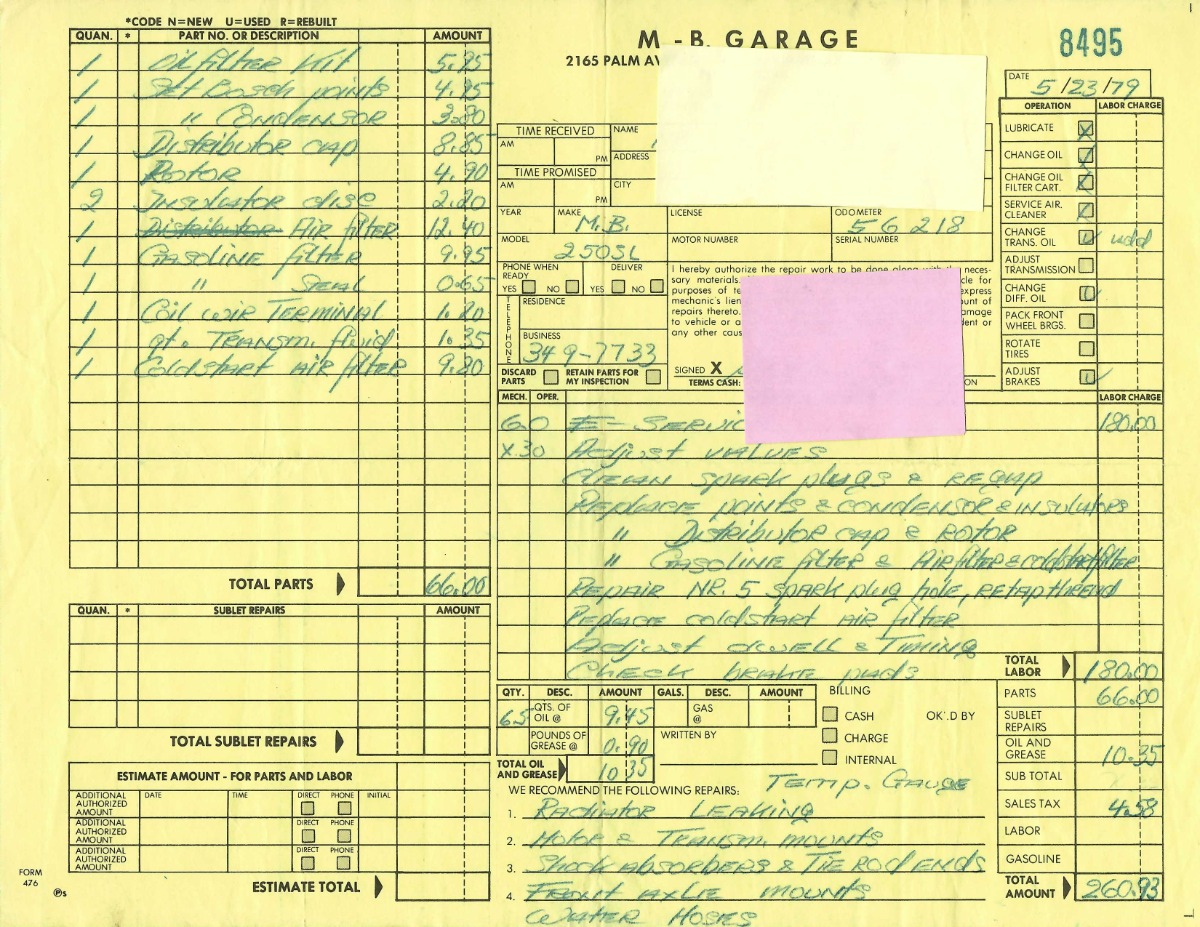 *CODE N=NEW U=USED R=REBUILT
QUAN. * PART NO. OR DESCRIPTION AMOUNT
1 Oil filter Kit 5.95
1 Set Bosch points 4.95
1 " Condensor 3.80
1 Distributor cap 8.85
1 Rotor 4.90
2 Insulator disc 2.20
1 Distributor Air filter 12.40
1 Gasoline filter 9.95
1 " Seal 0.65
1 Coil wir Terminal 1.20
1 qt. Transm. fluid 1.35
1 Coldstart air filter 9.80
TOTAL PARTS 66.00
QUAN. * SUBLET REPAIRS AMOUNT
TOTAL SUBLET REPAIRS
ESTIMATE AMOUNT - FOR PARTS AND LABOR
ADDITIONAL AUTHORIZED AMOUNT DATE TIME DIRECT PHONE INITIAL
ADDITIONAL AUTHORIZED AMOUNT DIRECT PHONE
ADDITIONAL AUTHORIZED AMOUNT DIRECT PHONE
ESTIMATE TOTAL
FORM 476
M-B. GARAGE
2165 PALM AV
8495
DATE 5/23/79
TIME RECEIVED NAME
AM PM ADDRESS
TIME PROMISED
AM PM CITY
YEAR MAKE M.B. LICENSE ODOMETER 56218
MODEL 250SL MOTOR NUMBER SERIAL NUMBER
PHONE WHEN READY YES NO DELIVER YES NO
TELEPHONE RESIDENCE
BUSINESS 349-7733
DISCARD PARTS RETAIN PARTS FOR MY INSPECTION
I hereby authorize the repair work to be done along with the neces-
sary materials. cle for
purposes of te express
mechanic's lien unt of
repairs thereto. amage
to vehicle or a dent or
any other caus
SIGNED X
TERMS CASH: ON
OPERATION LABOR CHARGE
LUBRICATE
CHANGE OIL
CHANGE OIL FILTER CART.
SERVICE AIR. CLEANER
CHANGE TRANS. OIL add
ADJUST TRANSMISSION
CHANGE DIFF. OIL
PACK FRONT WHEEL BRGS.
ROTATE TIRES
ADJUST BRAKES
MECH. OPER. LABOR CHARGE
6.0 E-Servic 180.00
x.30 Adjust valves
Clean spark plugs & regap
Replace points & condensor & insulators
" Distributor cap & Rotor
" Gasoline filter & Airfilter & coldstartfilter
Repair Nr. 5 spark plug hole, retap thread
Replace coldstart air filter
Adjust dwell & Timing
Check brake pads
TOTAL LABOR 180.00
QTY. DESC. AMOUNT GALS. DESC. AMOUNT
6.5 QTS. OF OIL @ 9.45 GAS @
POUNDS OF GREASE @ 0.90 WRITTEN BY
TOTAL OIL AND GREASE 10.35
BILLING
CASH OK'D BY
CHARGE
INTERNAL
PARTS 66.00
SUBLET REPAIRS
OIL AND GREASE 10.35
SUB TOTAL
SALES TAX 4.58
LABOR
GASOLINE
TOTAL AMOUNT 260.93
WE RECOMMEND THE FOLLOWING REPAIRS: Temp. Gauge
1. Radiator Leaking
2. Motor & Transm. mounts
3. Shock absorbers & Tie Rod ends
4. Front axle mounts
Water Hoses